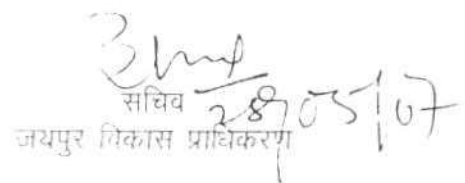 सचिव 28/05/07
जयपुर विकास प्राधिकरण